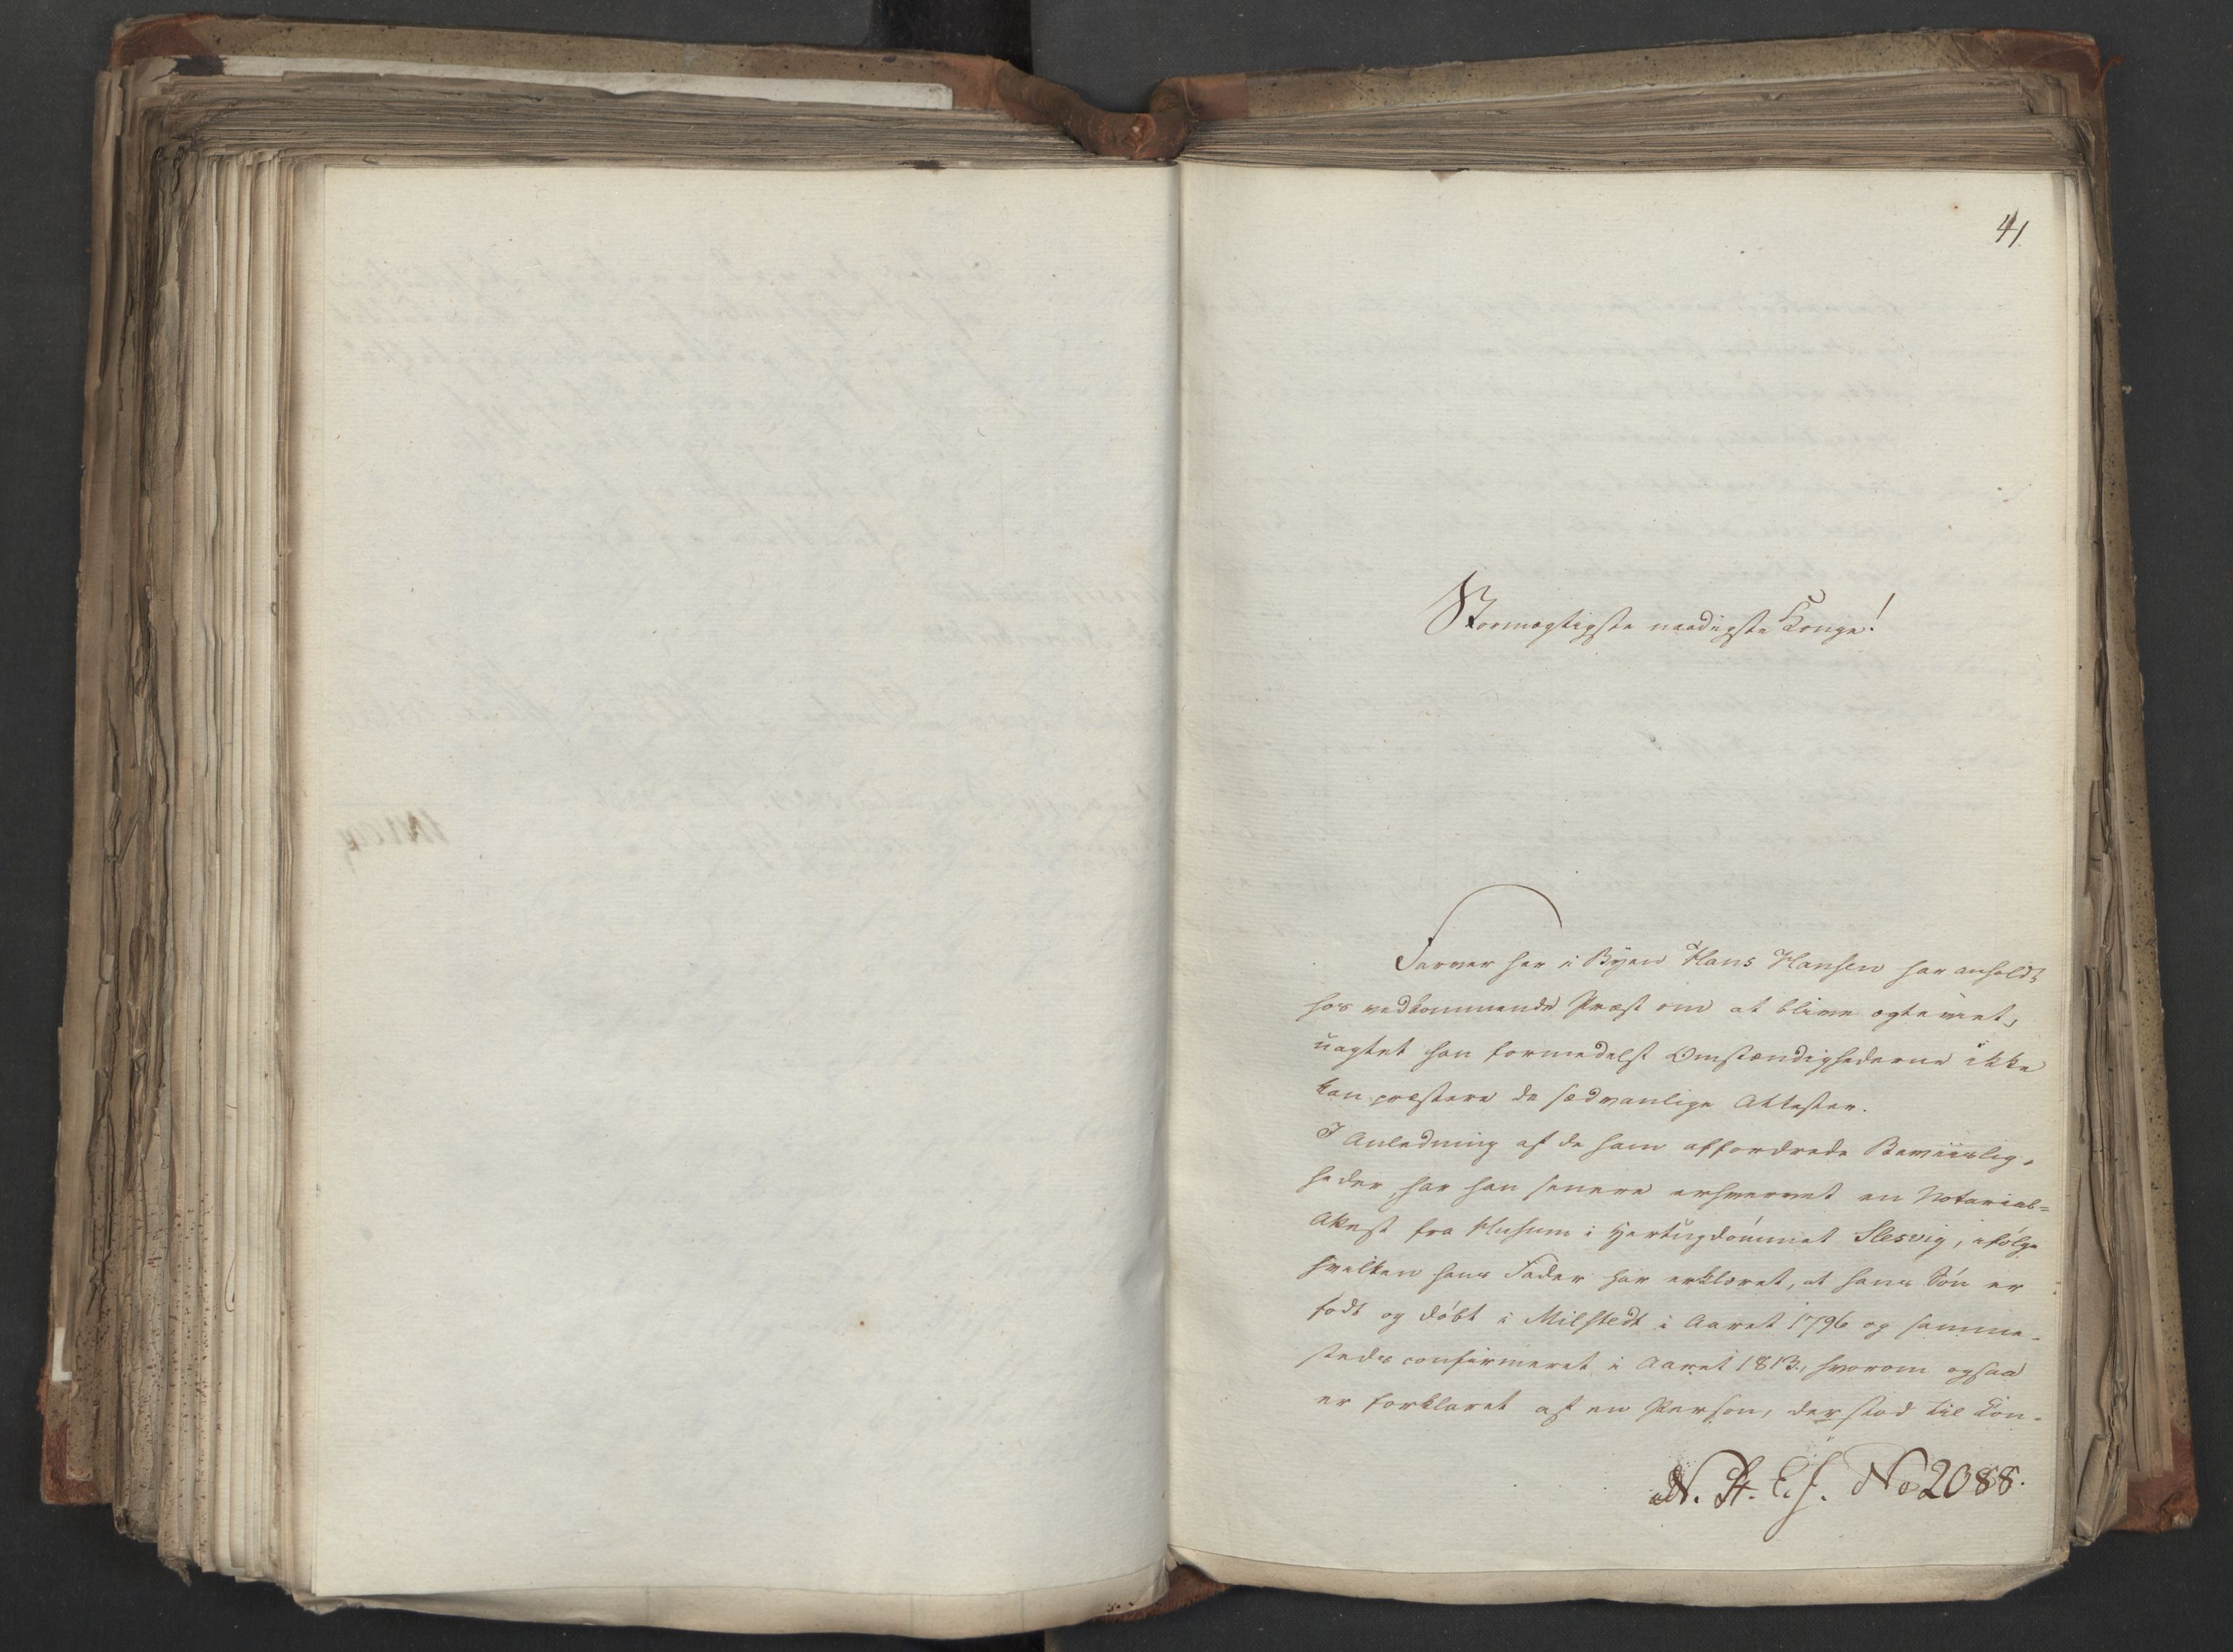 41
Stormægtigste naadigste Konge!
Farver her i Byen Hans Hansen har anholdt
hos vedkommende Præst om at blive ægteviet,
uagtet han formedelst Omstændighederne ikke
kan præstere de sædvanlige Attester.
I Anledning af de ham affordrede Beviislig-
heder, har han senere erhvervet en Notarial-
Attest fra Husum i Hertugdømmet Slesvig, ifølge
hvilken hans Fader har erklæret, at hans Søn er
født og døbt i Milstedt i Aaret 1796 og samme-
steds confirmeret i Aaret 1813, hvorom ogsaa
er forklaret af en Person, der stod til Con-
No 2088.